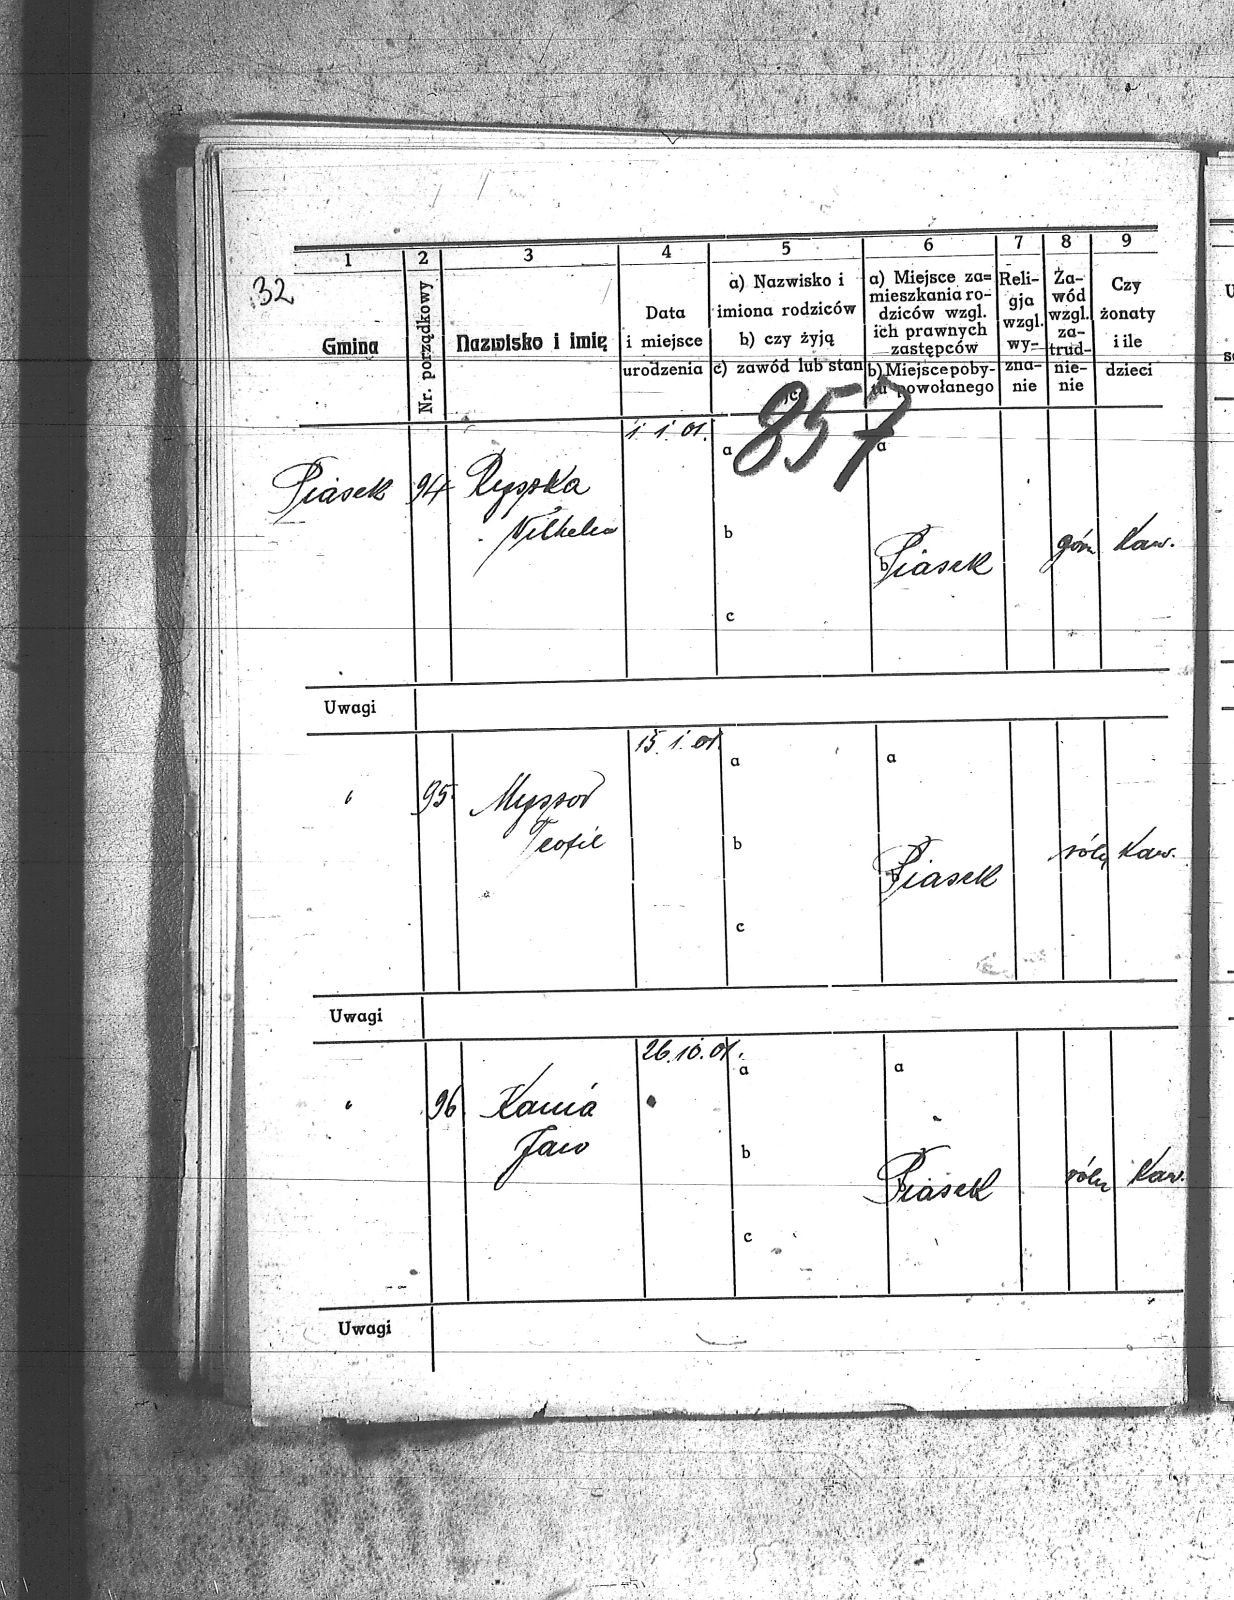 32
1 2 3 4 5 6 7 8 9
Gmina
Nr. porządkowy
Nazwisko i imię
Data
i miejsce
urodzenia
a) Nazwisko i
imiona rodziców
b) czy żyją
c) zawód lub stan
a) Miejsce za=
mieszkania ro-
dziców wzgl.
ich prawnych
zastępców
b) Miejsce poby-
tu powołanego
Reli-
gja
wzgl.
wy-
zna-
nie
Za-
wód
wzgl.
za-
trud-
nie-
nie
Czy
żonaty
i ile
dzieci
857
1. 1. 01.
a a
Piasek 94 Ryszka
Wilhelm
b
b Piasek gór Kaw.
c
Uwagi
15. 1. 01.
a a
" 95 Myszor
Teofil
b
b Piasek róln Kaw.
c
Uwagi
26. 10. 01.
a a
" 96 Kania
Jan
b
Piasek róln Kaw.
c
Uwagi